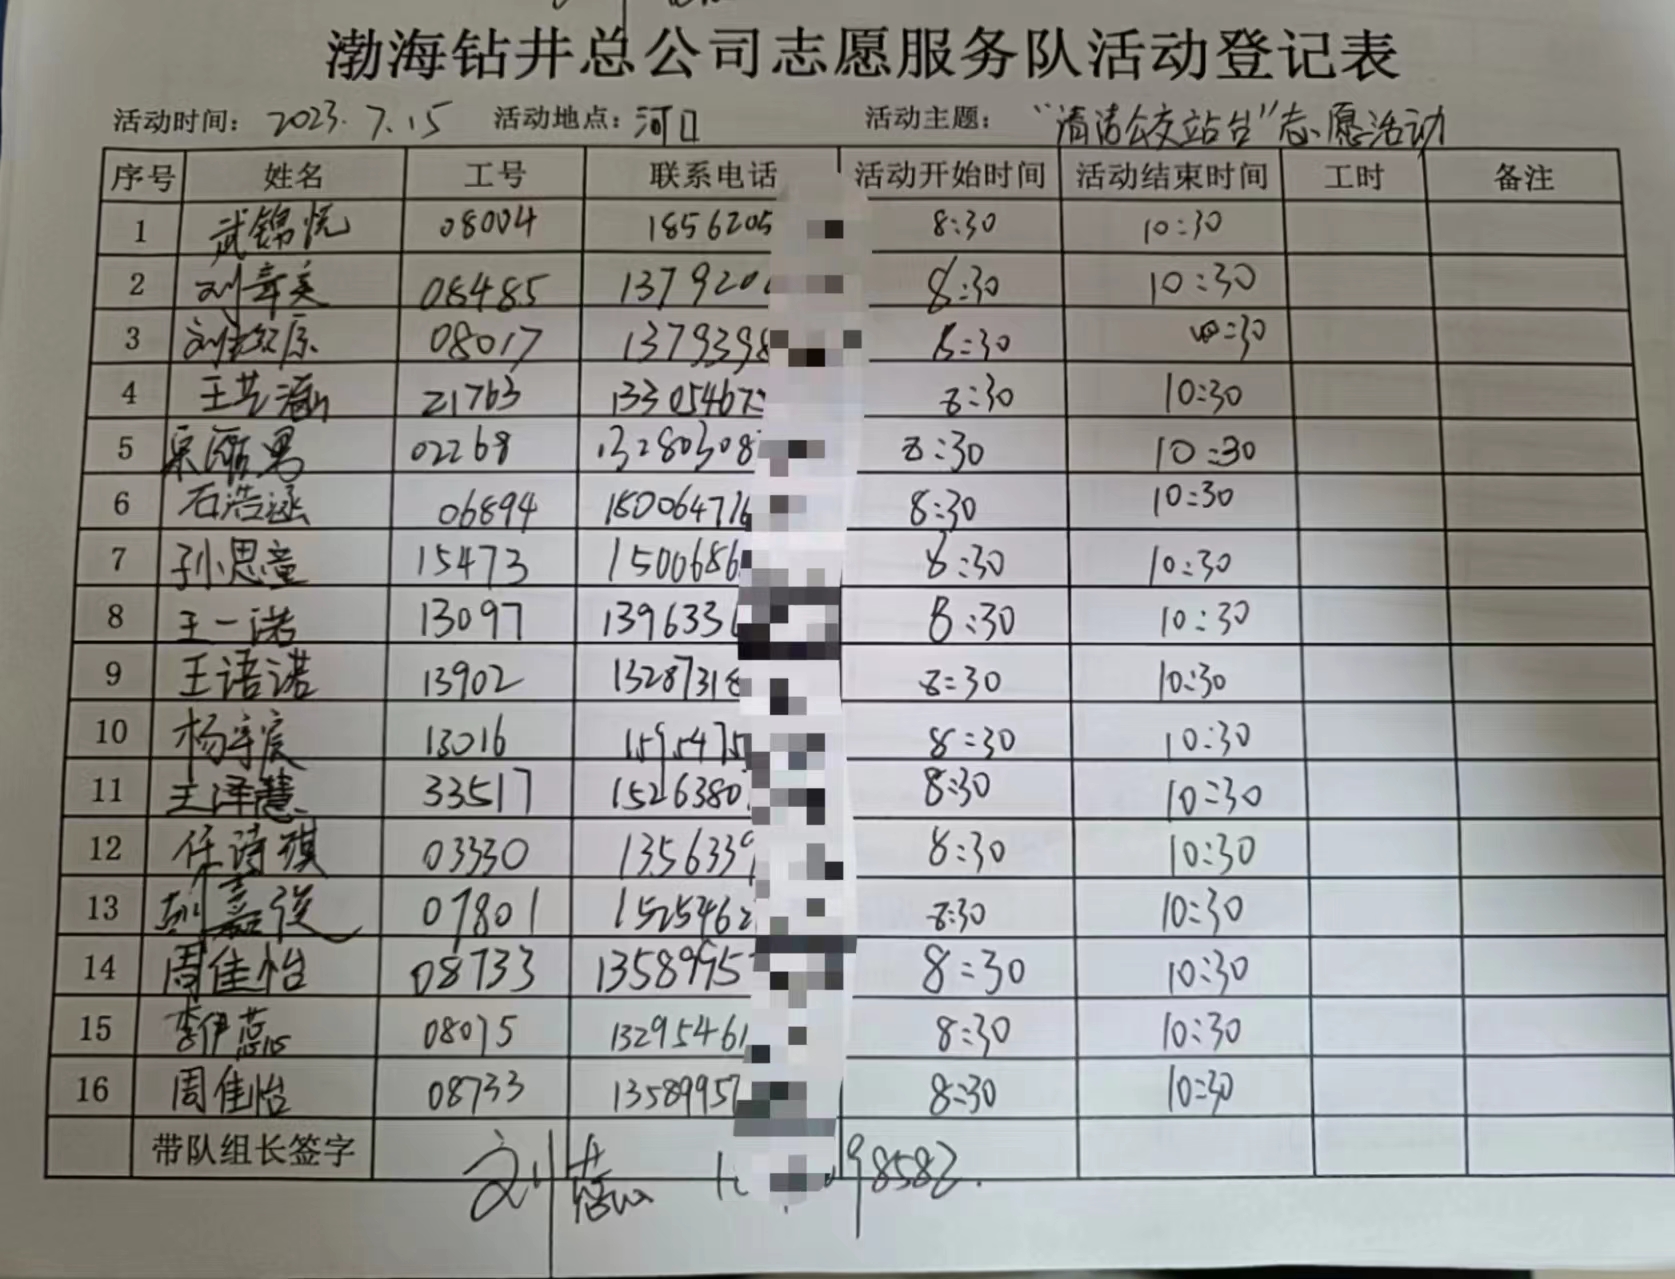 渤海钻井总公司志愿服务队活动登记表
活动时间：2023.7.15 活动地点：河口 活动主题：“清洁公交站台”志愿活动
序号 姓名 工号 联系电话 活动开始时间 活动结束时间 工时 备注
1 武锦悦 08004 1856205 8:30 10:30
2 刘章美 08485 137920 8:30 10:30
3 08017 1379398 8:30 10:30
4 王艺涵 21763 13305467 8:30 10:30
5 02268 13280308 8:30 10:30
6 石浩涵 06894 180064776 8:30 10:30
7 孙思童 15473 1500686 8:30 10:30
8 王一诺 13097 139633 8:30 10:30
9 王语诺 13902 13287318 8:30 10:30
10 13016 1595475 8:30 10:30
11 王泽慧 33517 1526380 8:30 10:30
12 任诗琪 03330 1356339 8:30 10:30
13 07801 1525462 8:30 10:30
14 周佳怡 08733 1358995 8:30 10:30
15 李伊蕊 08075 13295461 8:30 10:30
16 周佳怡 08733 13589957 8:30 10:30
带队组长签字 刘 98582.